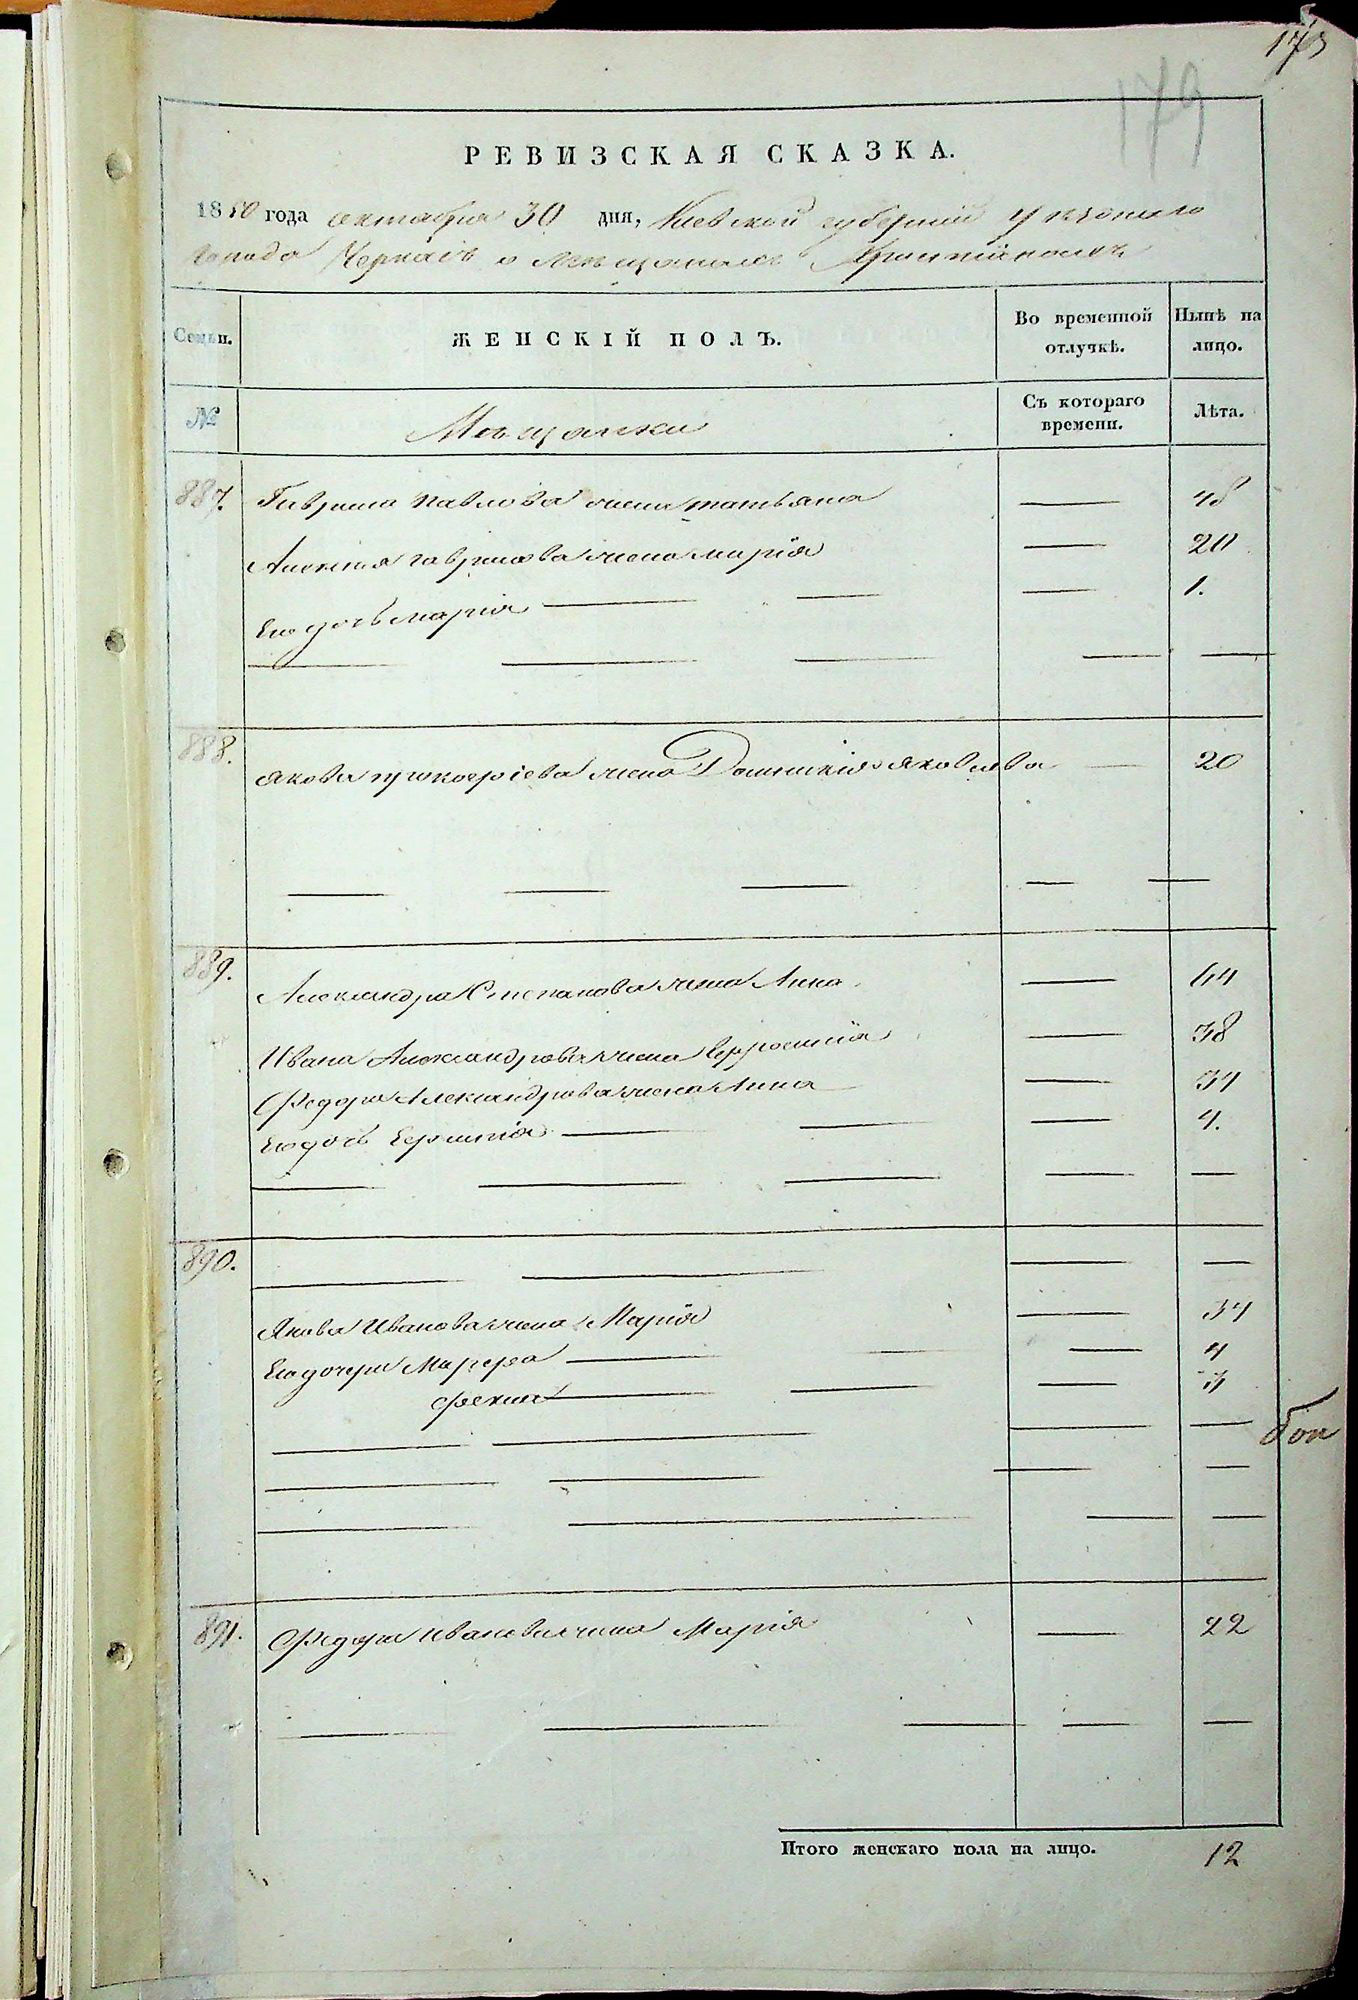 179
РЕВИЗСКАЯ СКАЗКА.
1850 года октября 30 дня, Киевской губернии уезднаго
города Черкасъ о мещанахъ Христіянахъ
Семьи. ЖЕНСКІЙ ПОЛЪ. Во временной отлучкѣ. Нынѣ на лицо.
№ Мещанки Съ котораго времени. Лѣта.
887. Гаврила Павлова жена Татьяна 48
Алексея Гаврилова жена Марія 20
Его дочь Марія 1.
888. Якова Прокофіева жена Домникія Яковлева 20
889. Александра Степанова жена Анна 64
Ивана Александрова жена Ефросинія 38
Федора Александрова жена Анна 34
Его дочь 4.
890.
Якова Иванова жена Марія 34
Его дочери Марфа 4
Фекла 3
891. Федора Иванова жена Марія 22
Итого женскаго пола на лицо. 12